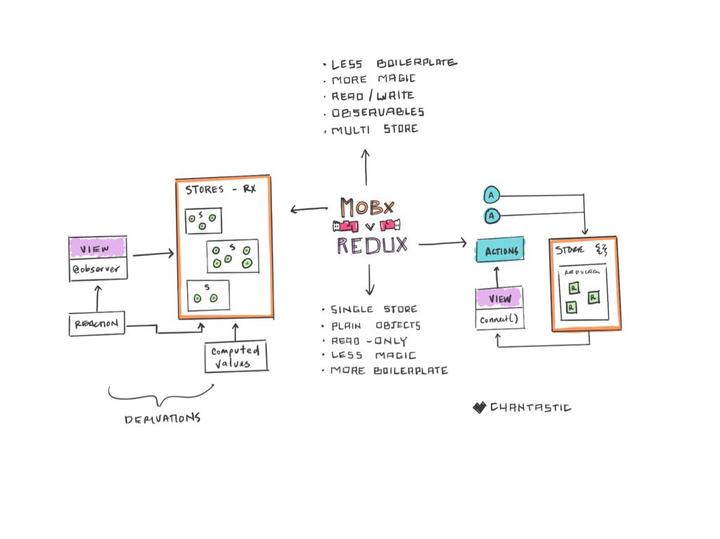 • LESS BOILERPLATE
• MORE MAGIC
• READ / WRITE
• OBSERVABLES
• MULTI STORE
STORES - RX
S
S
S
VIEW
@observer
REACTION
Computed
values
DERIVATIONS
MOBX
V
REDUX
• SINGLE STORE
• PLAIN OBJECTS
• READ-ONLY
• LESS MAGIC
• MORE BOILERPLATE
A
A
ACTIONS
VIEW
connect()
STORE {}
REDUCER
R
R
R
CHANTASTIC